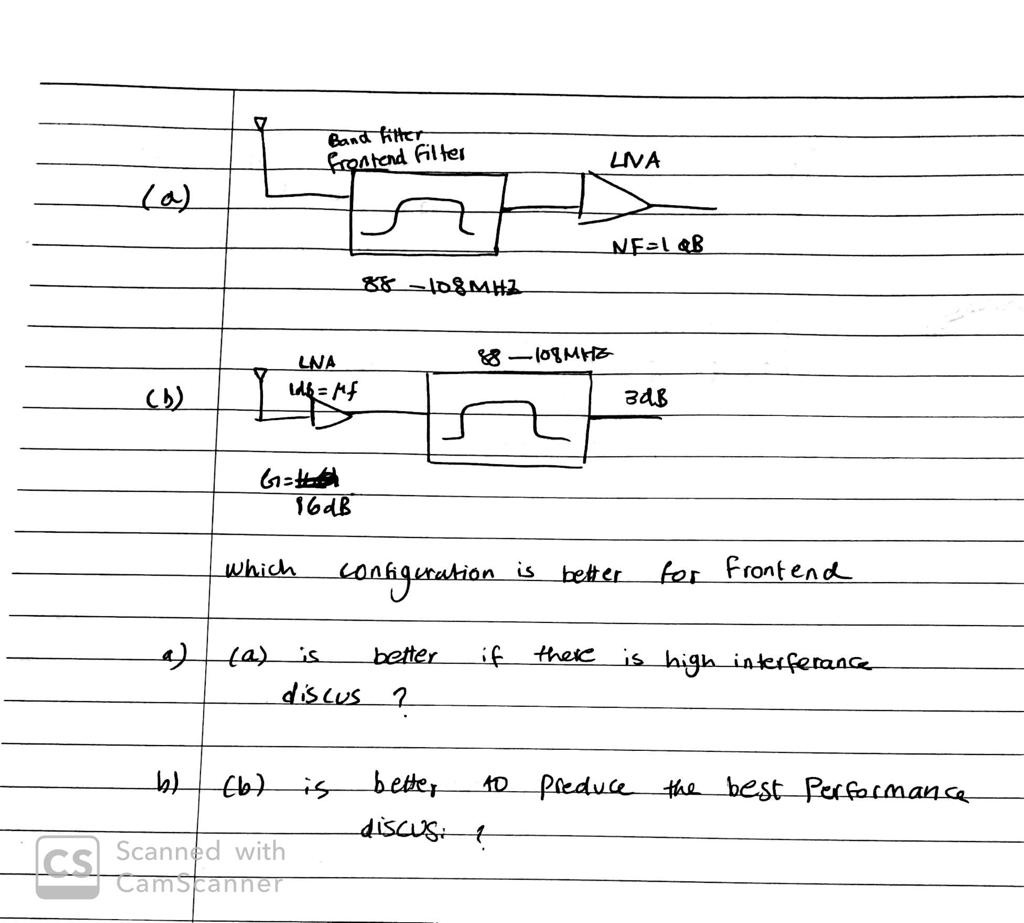 Band filter
Frontend Filter
LNA
(a)
NF=1 dB
88 - 108 MHZ
88 - 108 MHZ
LNA
(b)
1dB = Nf
3dB
G=
16dB
which configuration is better for frontend
a) (a) is better if there is high interferance
discus ?
b) (b) is better to preduce the best Performance
discus: ?
CS Scanned with
CamScanner